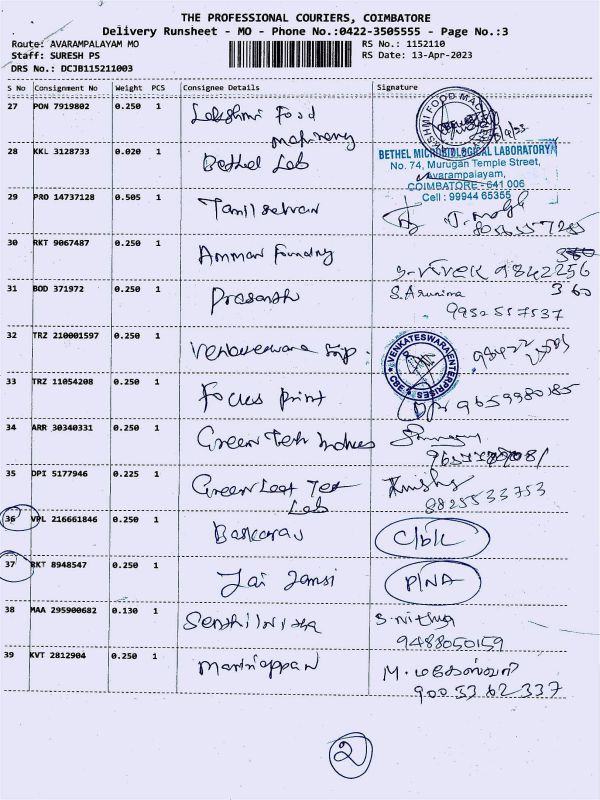 THE PROFESSIONAL COURIERS, COIMBATORE
Delivery Runsheet - MO - Phone No.:0422-3505555 - Page No.:3
Route: AVARAMPALAYAM MO RS No.: 1152110
Staff: SURESH PS RS Date: 13-Apr-2023
DRS No.: DCJB115211003
S No Consignment No Weight PCS Consignee Details Signature
27 PON 7919802 0.250 1 Lakshmi Food
28 KKL 3128733 0.020 1 Bethel Lab
BETHEL MICROBIOLOGICAL LABORATORY
No. 74, Murugan Temple Street,
Avarampalayam,
COIMBATORE - 641 006
Cell : 99944 65355
29 PRO 14737128 0.505 1 Tamilselvan
30 RKT 9067487 0.250 1 Amman Foundry
S-Vivek 9842256
360
31 BOD 371972 0.250 1 Prasanth S.Arunima
9952557537
32 TRZ 210001597 0.250 1
VENKATESWARA ENTERPRISES CBE
33 TRZ 11054208 0.250 1 Focus Print 9659980185
34 ARR 30340331 0.250 1 Green Tech
35 DPI 5177946 0.225 1 Green Leaf Test
Lab
8825533753
36 VPL 216661846 0.250 1 Baskaran C/bk
37 RKT 8948547 0.250 1 Jai P/NA
38 MAA 295900682 0.130 1 S.nithya
9488050159
39 KVT 2812904 0.250 1 Mariappan M. மகேஸ்வரி
9003362337
2